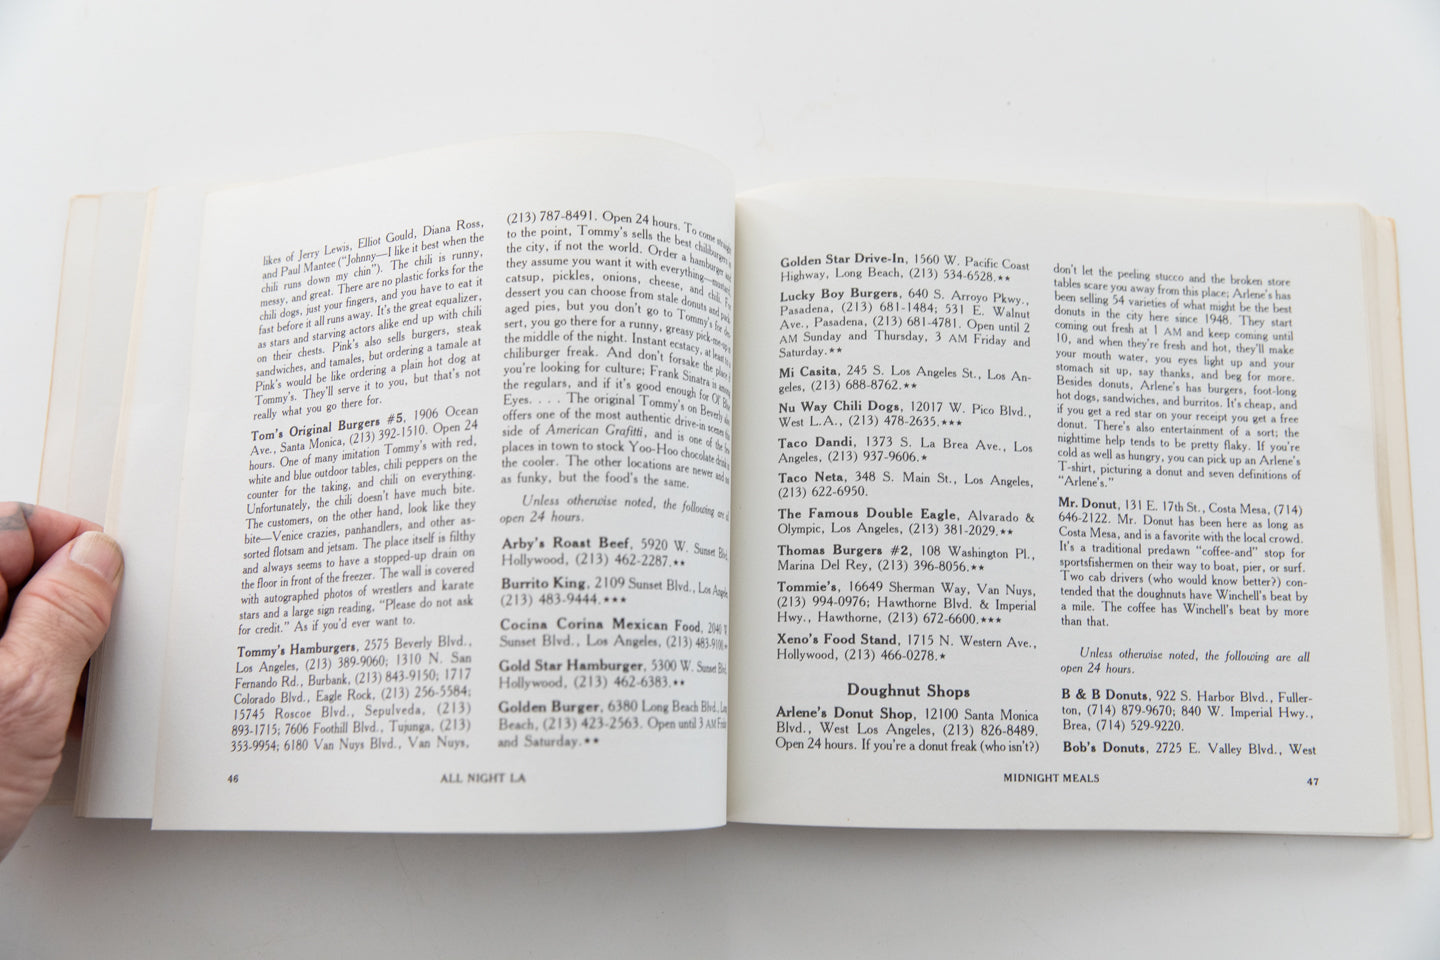 likes of Jerry Lewis, Elliot Gould, Diana Ross,
and Paul Mantee ("Johnny—I like it best when the
chili runs down my chin"). The chili is runny,
messy, and great. There are no plastic forks for the
chili dogs, just your fingers, and you have to eat it
fast before it all runs away. It's the great equalizer,
as stars and starving actors alike end up with chili
on their chests. Pink's also sells burgers, steak
sandwiches, and tamales, but ordering a tamale at
Pink's would be like ordering a plain hot dog at
Tommy's. They'll serve it to you, but that's not
really what you go there for.
Tom's Original Burgers #5, 1906 Ocean
Ave., Santa Monica, (213) 392-1510. Open 24
hours. One of many imitation Tommy's with red,
white and blue outdoor tables, chili peppers on the
counter for the taking, and chili on everything.
Unfortunately, the chili doesn't have much bite.
The customers, on the other hand, look like they
bite—Venice crazies, panhandlers, and other as-
sorted flotsam and jetsam. The place itself is filthy
and always seems to have a stopped-up drain on
the floor in front of the freezer. The wall is covered
with autographed photos of wrestlers and karate
stars and a large sign reading, "Please do not ask
for credit." As if you'd ever want to.
Tommy's Hamburgers, 2575 Beverly Blvd.,
Los Angeles, (213) 389-9060; 1310 N. San
Fernando Rd., Burbank, (213) 843-9150; 1717
Colorado Blvd., Eagle Rock, (213) 256-5584;
15745 Roscoe Blvd., Sepulveda, (213)
893-1715; 7606 Foothill Blvd., Tujunga, (213)
353-9954; 6180 Van Nuys Blvd., Van Nuys,
(213) 787-8491. Open 24 hours. To come straight
to the point, Tommy's sells the best chiliburgers in
the city, if not the world. Order a hamburger and
they assume you want it with everything—mustard,
catsup, pickles, onions, cheese, and chili. For
dessert you can choose from stale donuts and pack-
aged pies, but you don't go to Tommy's for des-
sert, you go there for a runny, greasy pick-me-up in
the middle of the night. Instant ecstacy, at least to a
chiliburger freak. And don't forsake the place if
you're looking for culture; Frank Sinatra is among
the regulars, and if it's good enough for Ol' Blue
Eyes. . . . The original Tommy's on Beverly also
offers one of the most authentic drive-in scenes this
side of American Grafitti, and is one of the few
places in town to stock Yoo-Hoo chocolate drink in
the cooler. The other locations are newer and not
as funky, but the food's the same.
Unless otherwise noted, the following are all
open 24 hours.
Arby's Roast Beef, 5920 W. Sunset Blvd.,
Hollywood, (213) 462-2287.★★
Burrito King, 2109 Sunset Blvd., Los Angeles,
(213) 483-9444.★★★
Cocina Corina Mexican Food, 2040
Sunset Blvd., Los Angeles, (213) 483-9100.★
Gold Star Hamburger, 5300 W. Sunset Blvd.,
Hollywood, (213) 462-6383.★★
Golden Burger, 6380 Long Beach Blvd., Long
Beach, (213) 423-2563. Open until 3 AM Friday
and Saturday.★★
46
ALL NIGHT LA
Golden Star Drive-In, 1560 W. Pacific Coast
Highway, Long Beach, (213) 534-6528.★★
Lucky Boy Burgers, 640 S. Arroyo Pkwy.,
Pasadena, (213) 681-1484; 531 E. Walnut
Ave., Pasadena, (213) 681-4781. Open until 2
AM Sunday and Thursday, 3 AM Friday and
Saturday.★★
Mi Casita, 245 S. Los Angeles St., Los An-
geles, (213) 688-8762.★★
Nu Way Chili Dogs, 12017 W. Pico Blvd.,
West L.A., (213) 478-2635.★★★
Taco Dandi, 1373 S. La Brea Ave., Los
Angeles, (213) 937-9606.★
Taco Neta, 348 S. Main St., Los Angeles,
(213) 622-6950.
The Famous Double Eagle, Alvarado &
Olympic, Los Angeles, (213) 381-2029.★★
Thomas Burgers #2, 108 Washington Pl.,
Marina Del Rey, (213) 396-8056.★★
Tommie's, 16649 Sherman Way, Van Nuys,
(213) 994-0976; Hawthorne Blvd. & Imperial
Hwy., Hawthorne, (213) 672-6600.★★★
Xeno's Food Stand, 1715 N. Western Ave.,
Hollywood, (213) 466-0278.★
Doughnut Shops
Arlene's Donut Shop, 12100 Santa Monica
Blvd., West Los Angeles, (213) 826-8489.
Open 24 hours. If you're a donut freak (who isn't?)
don't let the peeling stucco and the broken store
tables scare you away from this place; Arlene's has
been selling 54 varieties of what might be the best
donuts in the city here since 1948. They start
coming out fresh at 1 AM and keep coming until
10, and when they're fresh and hot, they'll make
your mouth water, you eyes light up and your
stomach sit up, say thanks, and beg for more.
Besides donuts, Arlene's has burgers, foot-long
hot dogs, sandwiches, and burritos. It's cheap, and
if you get a red star on your receipt you get a free
donut. There's also entertainment of a sort; the
nighttime help tends to be pretty flaky. If you're
cold as well as hungry, you can pick up an Arlene's
T-shirt, picturing a donut and seven definitions of
"Arlene's."
Mr. Donut, 131 E. 17th St., Costa Mesa, (714)
646-2122. Mr. Donut has been here as long as
Costa Mesa, and is a favorite with the local crowd.
It's a traditional predawn "coffee-and" stop for
sportsfishermen on their way to boat, pier, or surf.
Two cab drivers (who would know better?) con-
tended that the doughnuts have Winchell's beat by
a mile. The coffee has Winchell's beat by more
than that.
Unless otherwise noted, the following are all
open 24 hours.
B & B Donuts, 922 S. Harbor Blvd., Fuller-
ton, (714) 879-9670; 840 W. Imperial Hwy.,
Brea, (714) 529-9220.
Bob's Donuts, 2725 E. Valley Blvd., West
MIDNIGHT MEALS
47